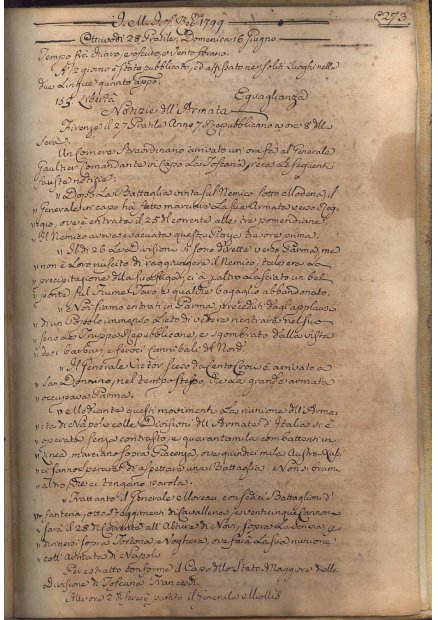 1799
273
28 Pratile, Domenica 16 Giugno
Tempo frà chiaro, e oscuro, e Vento forano.
A ½ giorno è stato pubblicato, ed affissato nei soliti Luoghi nelle
due Lingue quanto appo.
Libertà Eguaglianza
Notizie dell'Armata
Firenze il 27 Pratile Anno 7 Repubblicano a ore 8 della
Sera.
Un Corriere Straordinario arrivato un'ora fa al Generale
Gaultier Comandante in Capo la Toscana, reca le seguenti
fauste notizie:
" Dopo la Battaglia vinta sul Nemico sotto Modona, il
Generale in capo hà fatto marciare la sua Armata verso Reg-
gio, ove è entrato il 25 di corrente alle tre pomeridiane.
Il Nemico aveva evacuata questa Piazza tre ore prima.
" Il dì 26 le Divisioni si sono dirette verso Parma, ma
" non è Loro riuscito di raggiungere il Nemico, tale era la
" precipitazione della sua fuga, ci à altro lasciato un bel
" ponte sul Fiume Taro, e qualche bagaglio abbandonato.
" Noi siamo entrati in Parma, preceduti dagli applausi
" di un Popolo immenso lieto di vedere rientrare nel suo
" seno le Truppe Repubblicane, e sgombrato dalla vista
" dei barbari, e feroci Cannibali del Nord.
" Il Generale Victor sceso da Cento Croci è arrivato a
" San Donnino, nel tempo stesso, che la grande armata
" occupava Parma.
" Mediante questi movimenti la riunione dell'Arma-
" ta di Napoli colle Divisioni dell'Armata d'Italia si è
" operata senza contrasto, e quaranta mila combattenti in
" Linea marciano sopra Piacenza, ove quindici mila Austro-Rus-
si fanno sperare di aspettarci una Battaglia. Noi si bram-
altro, che ci tengano parola.
" Frattanto il Generale Moreau con sedici Battaglioni d'
fanteria, otto Reggimenti di Cavalleria, e venticinque Cannoni
sarà il 28 di Corrente all'Altura di Novi, sopra la Scrivia, e
dirigersi sopra Tortona, e Voghera, ove farà la sua riunione
coll'Armata di Napoli
Per estratto conforme il Capo dello Stato Maggiore delle
Divisione di Toscana
Alle ore 2 di sera è partito il Generale Miollis